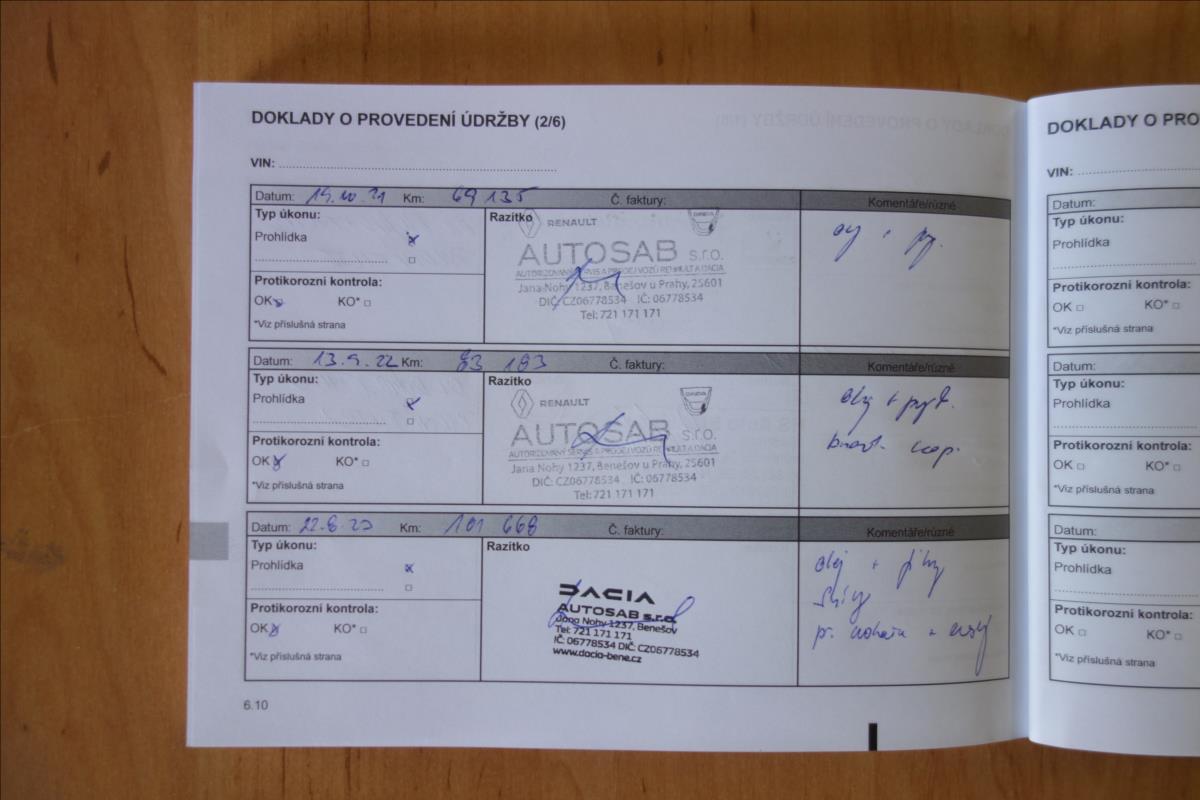 DOKLADY O PROVEDENÍ ÚDRŽBY (2/6)
VIN:
Datum: 19.10.21 Km: 69 135 Č. faktury: Komentáře/různé
Typ úkonu:
Prohlídka
Protikorozní kontrola:
OK KO*
*Viz příslušná strana
Razítko
RENAULT DACIA
AUTOSAB s.r.o.
AUTORIZOVANÝ SERVIS A PRODEJ VOZŮ RENAULT A DACIA
Jana Nohy 1237, Benešov u Prahy, 25601
DIČ: CZ06778534 IČ: 06778534
Tel: 721 171 171
Datum: 13.9.22 Km: 83 183 Č. faktury: Komentáře/různé
Typ úkonu:
Prohlídka
Protikorozní kontrola:
OK KO*
*Viz příslušná strana
Razítko
RENAULT DACIA
AUTOSAB s.r.o.
AUTORIZOVANÝ SERVIS A PRODEJ VOZŮ RENAULT A DACIA
Jana Nohy 1237, Benešov u Prahy, 25601
DIČ: CZ06778534 IČ: 06778534
Tel: 721 171 171
olej +
Datum: 22.8.23 Km: 101 668 Č. faktury: Komentáře/různé
Typ úkonu:
Prohlídka
Protikorozní kontrola:
OK KO*
*Viz příslušná strana
Razítko
DACIA
AUTOSAB s.r.o.
Jana Nohy 1237, Benešov
Tel: 721 171 171
IČ: 06778534 DIČ: CZ06778534
www.dacia-bene.cz
olej + filtry
6.10
DOKLADY O PRO
VIN:
Datum:
Typ úkonu:
Prohlídka
Protikorozní kontrola:
OK KO*
*Viz příslušná strana
Datum:
Typ úkonu:
Prohlídka
Protikorozní kontrola:
OK KO*
*Viz příslušná strana
Datum:
Typ úkonu:
Prohlídka
Protikorozní kontrola:
OK KO*
*Viz příslušná strana